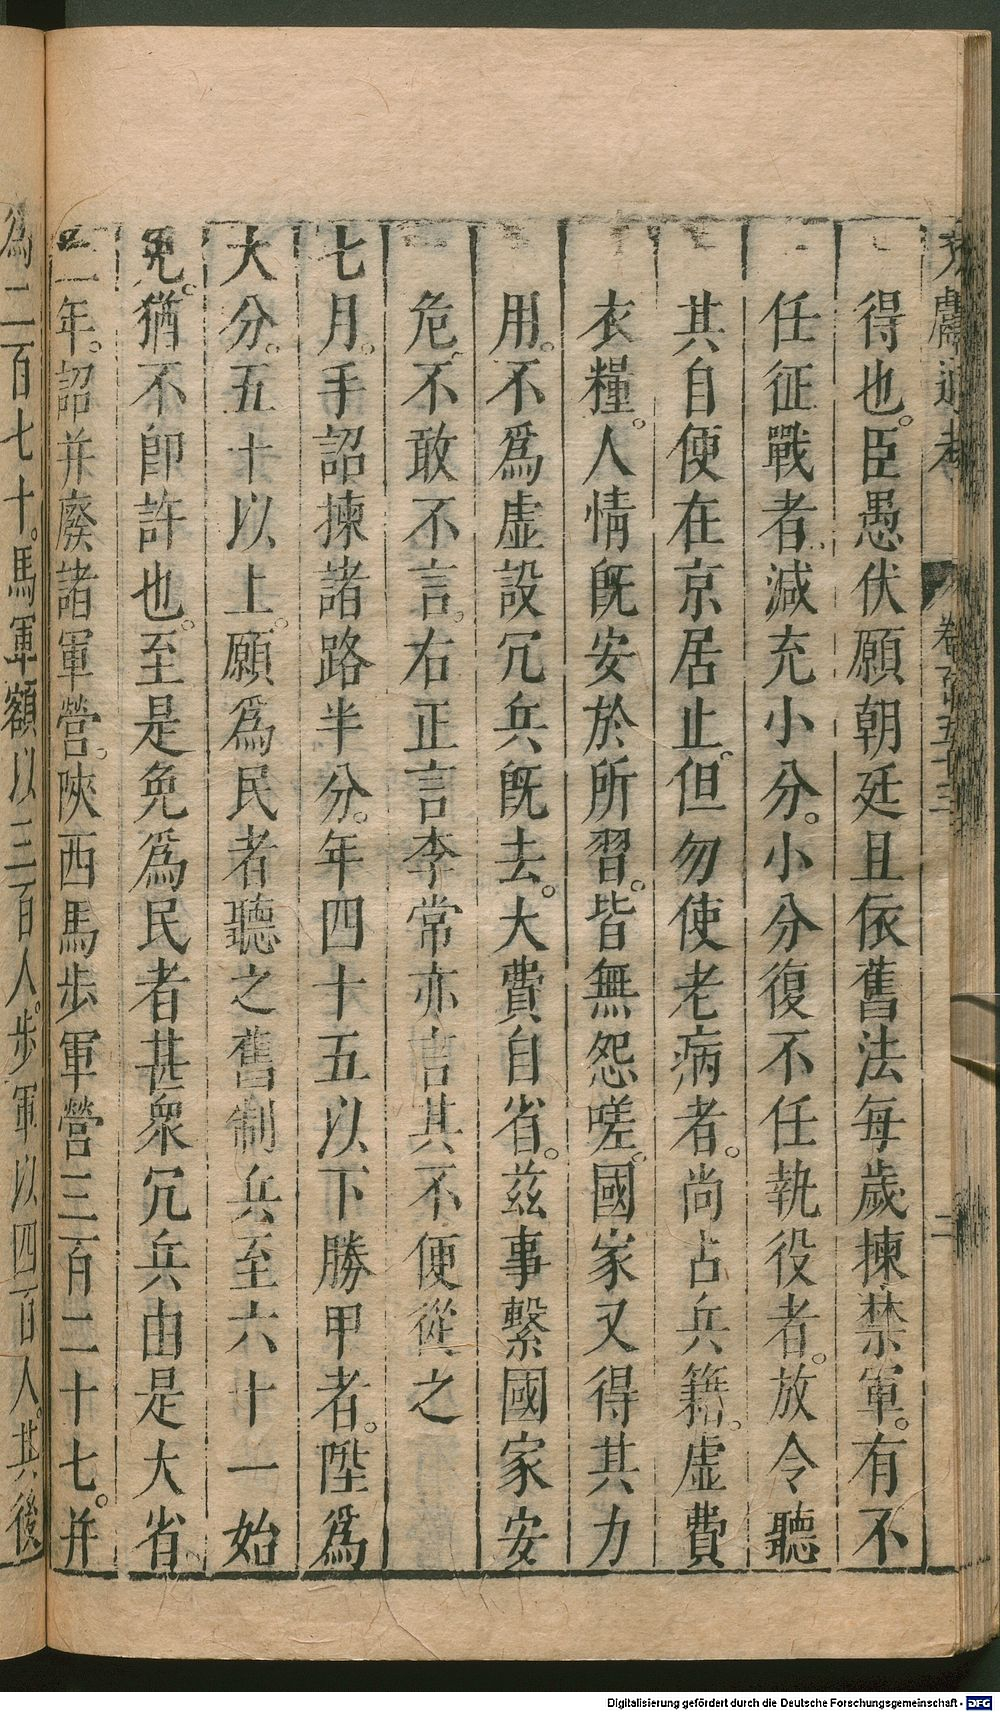 文獻通考 卷百五十三 二
得也。臣愚伏願朝廷且依舊法每歲揀禁軍。有不
任征戰者、減充小分。小分復不任執役者。放令聽
其自便在京居止。但勿使老病者。尚占兵籍。虛費
衣糧。人情旣安於所習。皆無怨嗟。國家又得其力
用。不爲虛設冗兵旣去。大費自省。茲事繫國家安
危、不敢不言。右正言李常亦言其不便從之
七月。手詔揀諸路半分。年四十五以下勝甲者。陞爲
大分。五十以上。願爲民者聽之舊制兵至六十一始
免。猶不卽許也。至是免爲民者甚衆冗兵由是大省。
二年。詔并廢諸軍營。陝西馬步軍營三百二十七。并
爲二百七十。馬軍額以三百人。步軍以四百人。其後
Digitalisierung gefördert durch die Deutsche Forschungsgemeinschaft - DFG